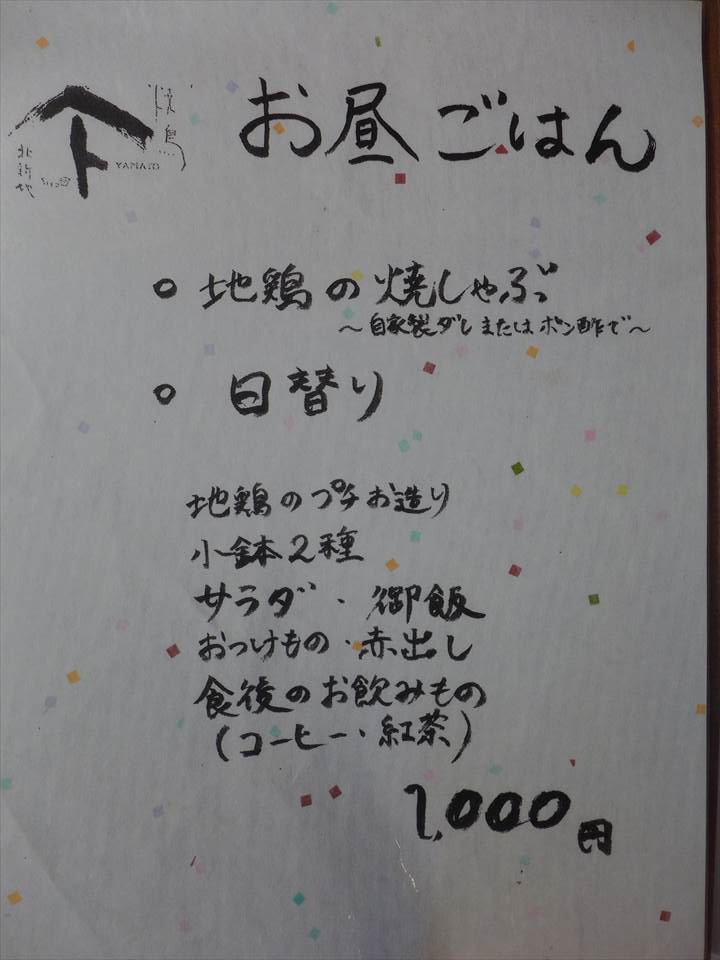 お昼ごはん
北新地
YAMATO
○ 地鶏の焼しゃぶ
〜自家製ダレまたはポン酢で〜
○ 日替り
地鶏のプチお造り
小鉢2種
サラダ・御飯
おつけもの・赤出し
食後のお飲みもの
(コーヒー・紅茶)
1,000円